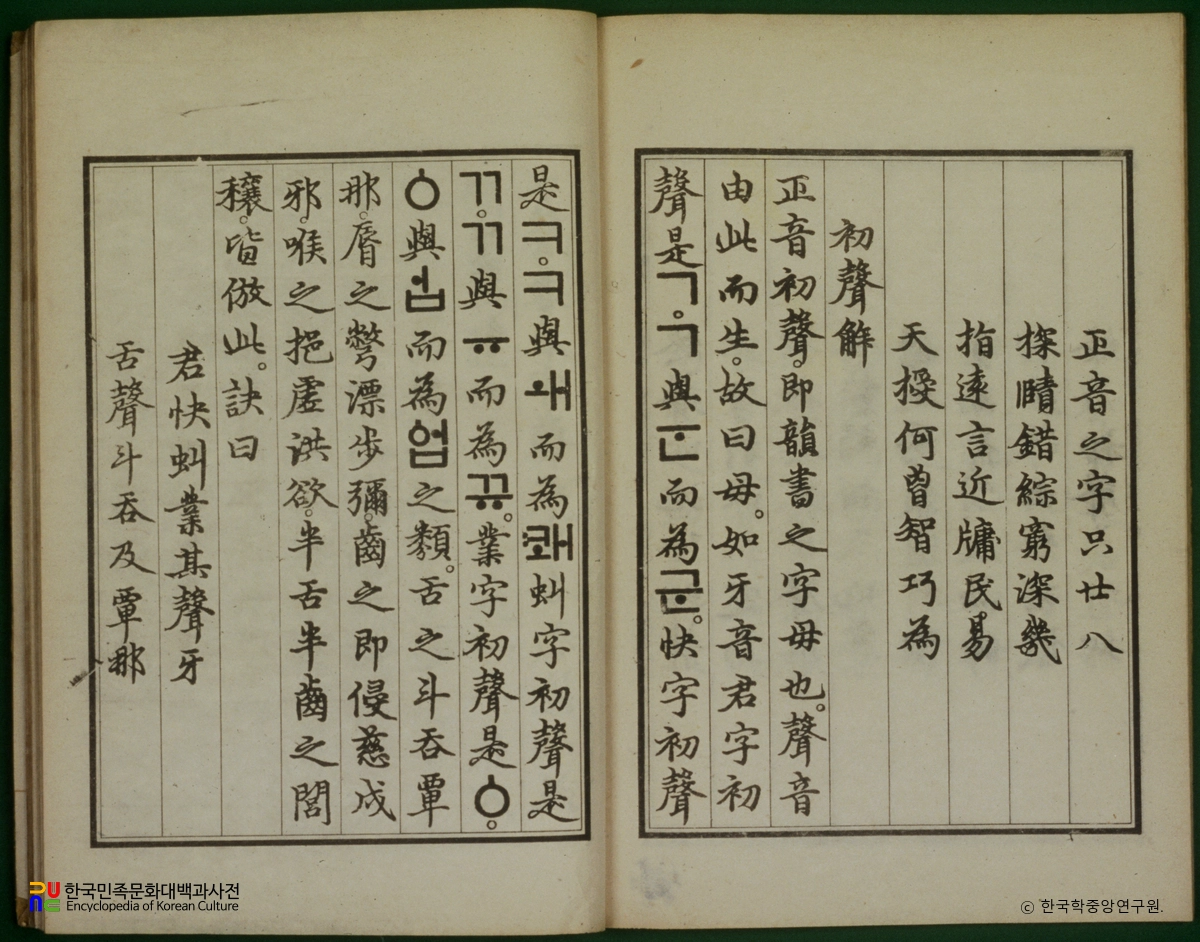 正音之字只廿八
探賾錯綜窮深幾
指遠言近牖民易
天授何曾智巧為
初聲解
正音初聲。即韻書之字母也。聲音
由此而生。故曰母。如牙音君字初
聲是ㄱ。ㄱ與ᅟᅮᆫ而為군。快字初聲
是ㅋ。ㅋ與ㅙ而為쾌虯字初聲是
ㄲ。ㄲ與ㅠ而為뀨。業字初聲是ㆁ。
ㆁ與ᅟᅥᆸ而為업之類。舌之斗吞覃
那。脣之彆漂步彌。齒之即侵慈戌
邪。喉之挹虛洪欲。半舌半齒之閭
穰。皆倣此。訣曰
君快虯業其聲牙
舌聲斗吞及覃那
한국민족문화대백과사전
Encyclopedia of Korean Culture
© 한국학중앙연구원.